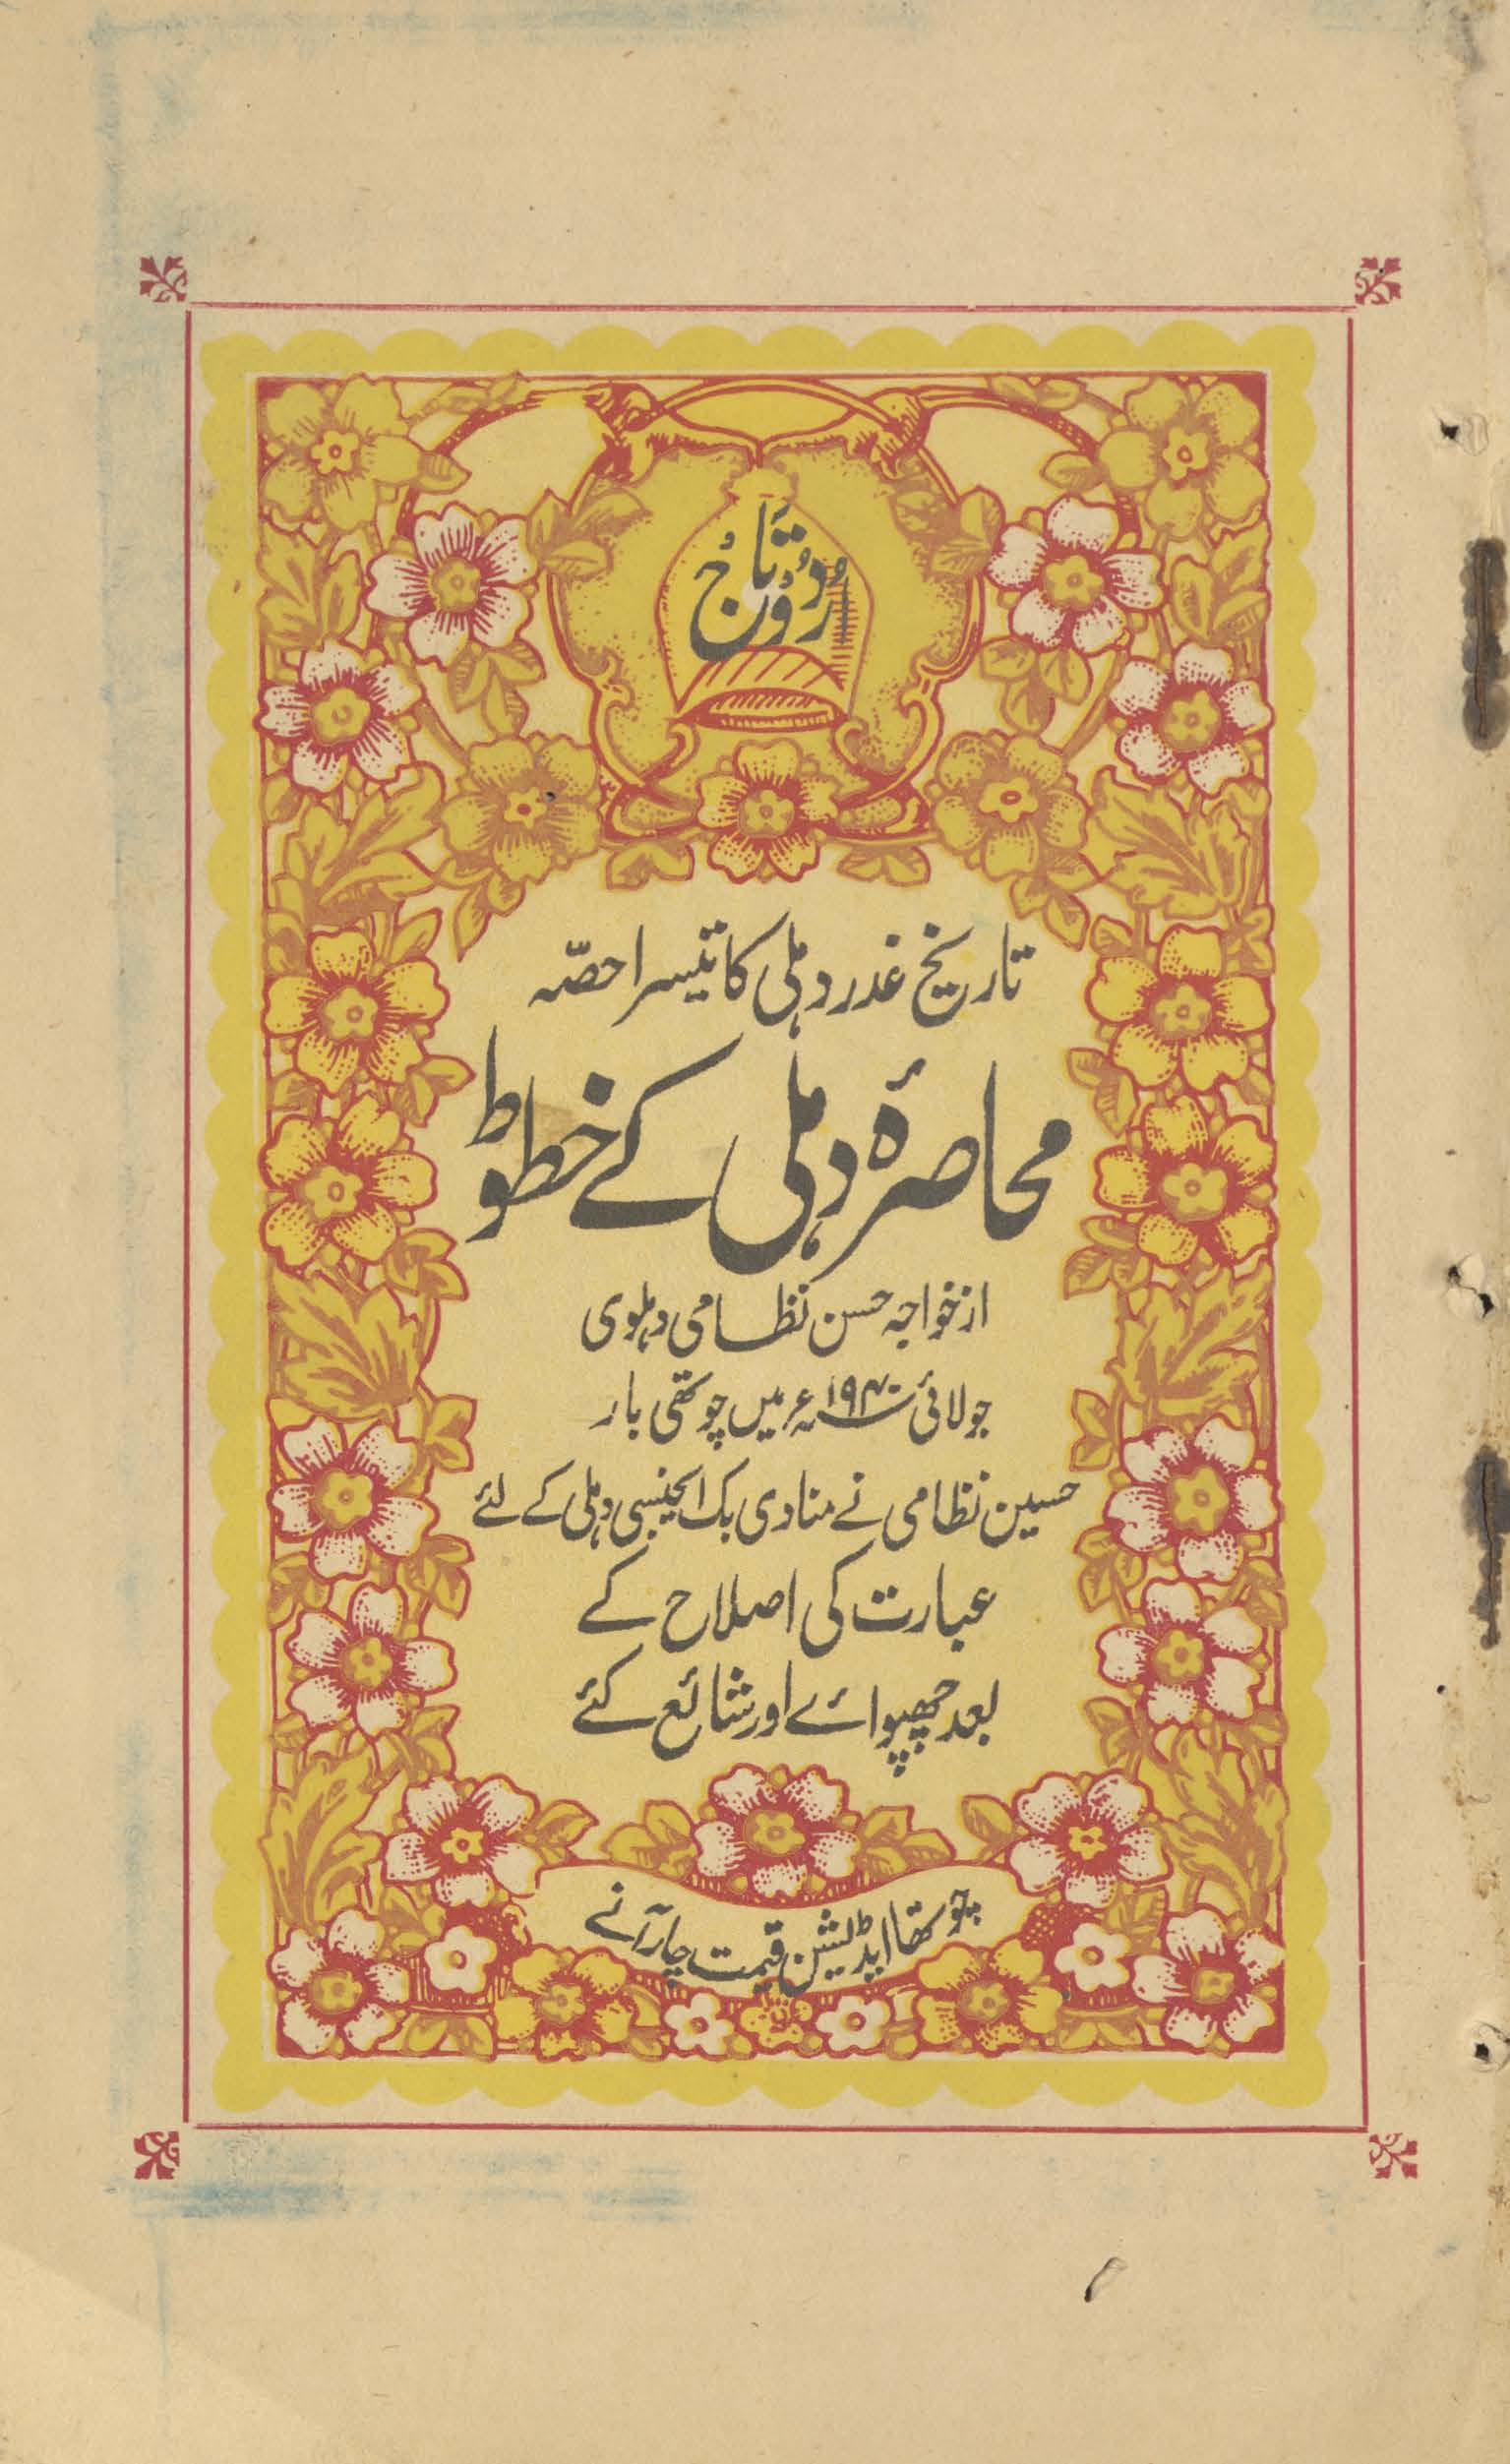 اُردُو تاج
تاریخ غدر دہلی کا تیسرا حصّہ
محاصرۂ دہلی کے خطوط
از خواجہ حسن نظامی دہلوی
جولائی ۱۹۴۰ء میں چوتھی بار
حسین نظامی نے منادی بک ایجنسی دہلی کے لئے
عبارت کی اصلاح کے
بعد چھپوائے اور شائع کئے
چوتھا ایڈیشن قیمت چار آنے